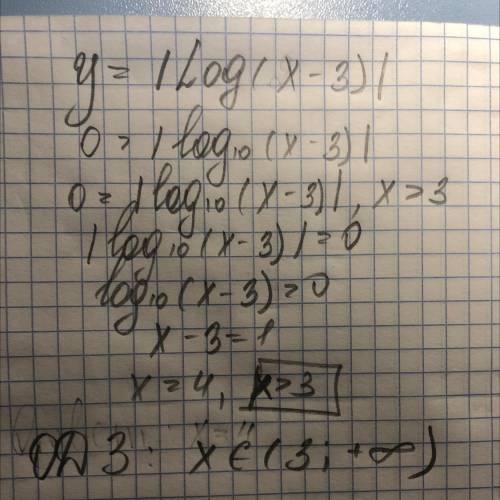 y = |Log(x-3)|
0 = |log₁₀(x-3)|
0 = |log₁₀(x-3)|, x>3
|log₁₀(x-3)|=0
log₁₀(x-3)=0
x-3=1
x=4, x>3
ОДЗ: x ∈ (3; +∞)